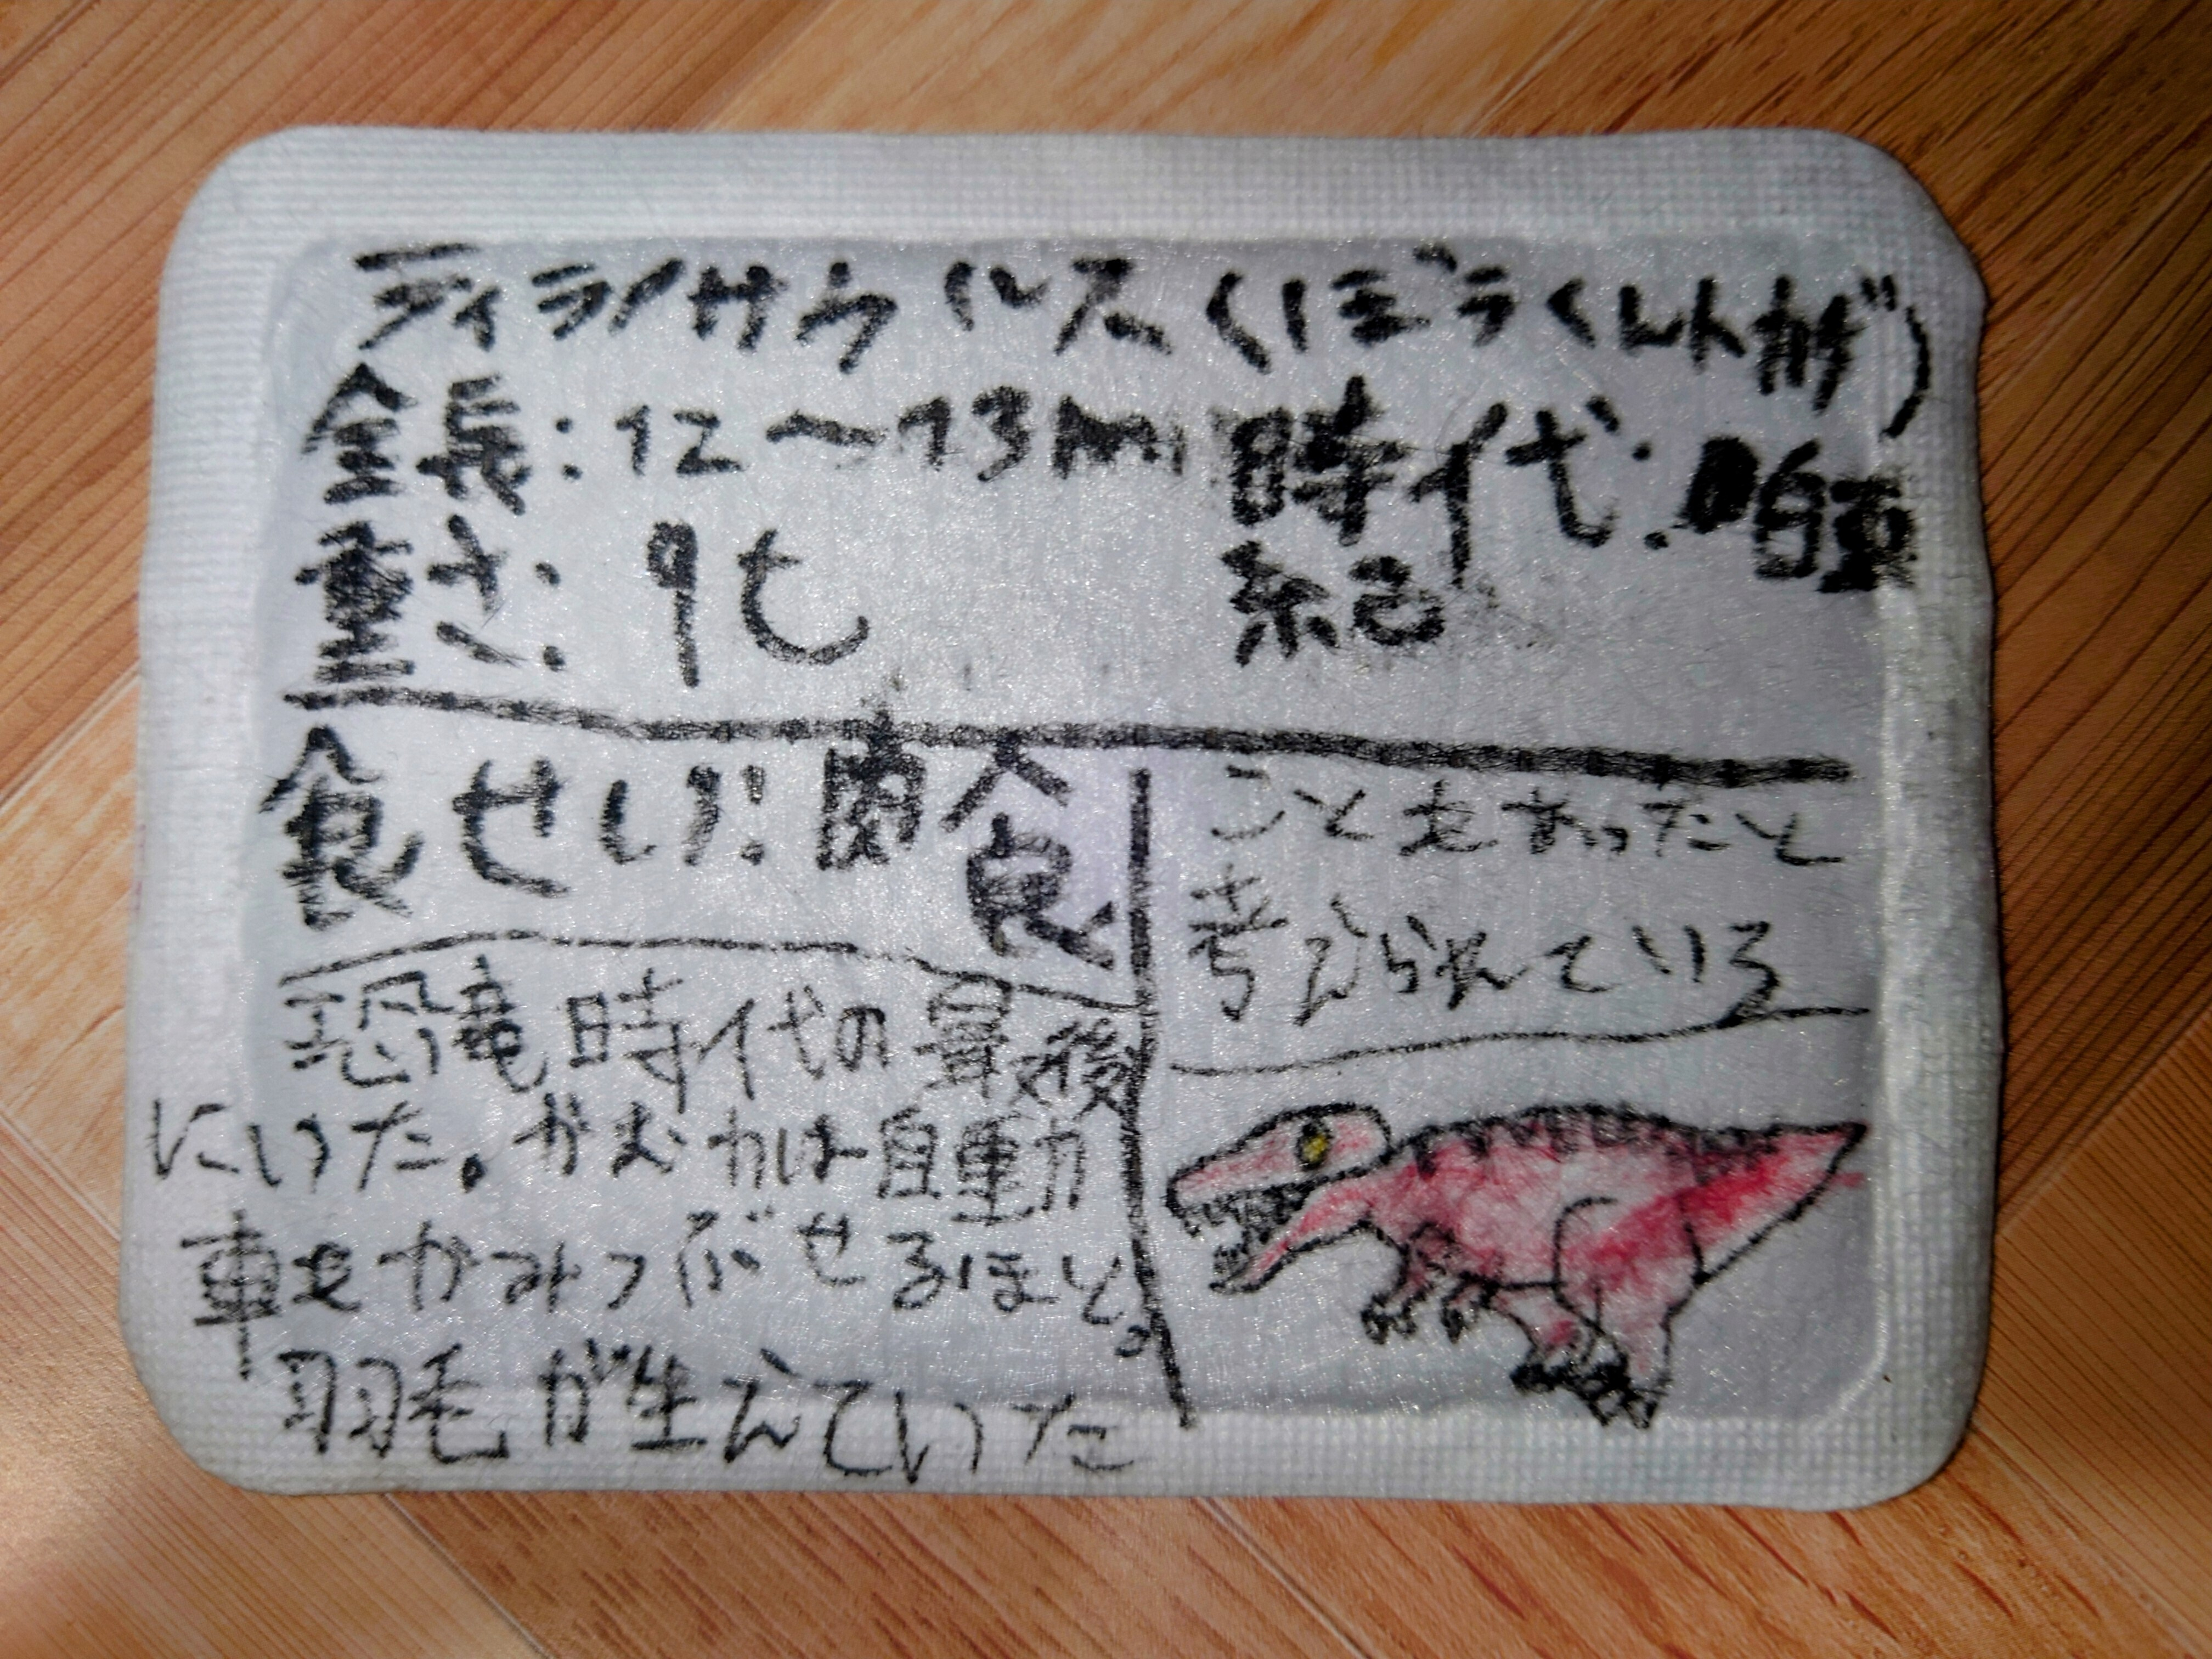 ティラノサウルス(ぼうくんトカゲ)
全長:12〜13m
時代:白亜紀
重さ:9t
食せい:肉食
恐竜時代の最後
にいた。かむ力は自動
車をかみつぶせるほど。
羽毛が生えていた
こともあったと
考えられている